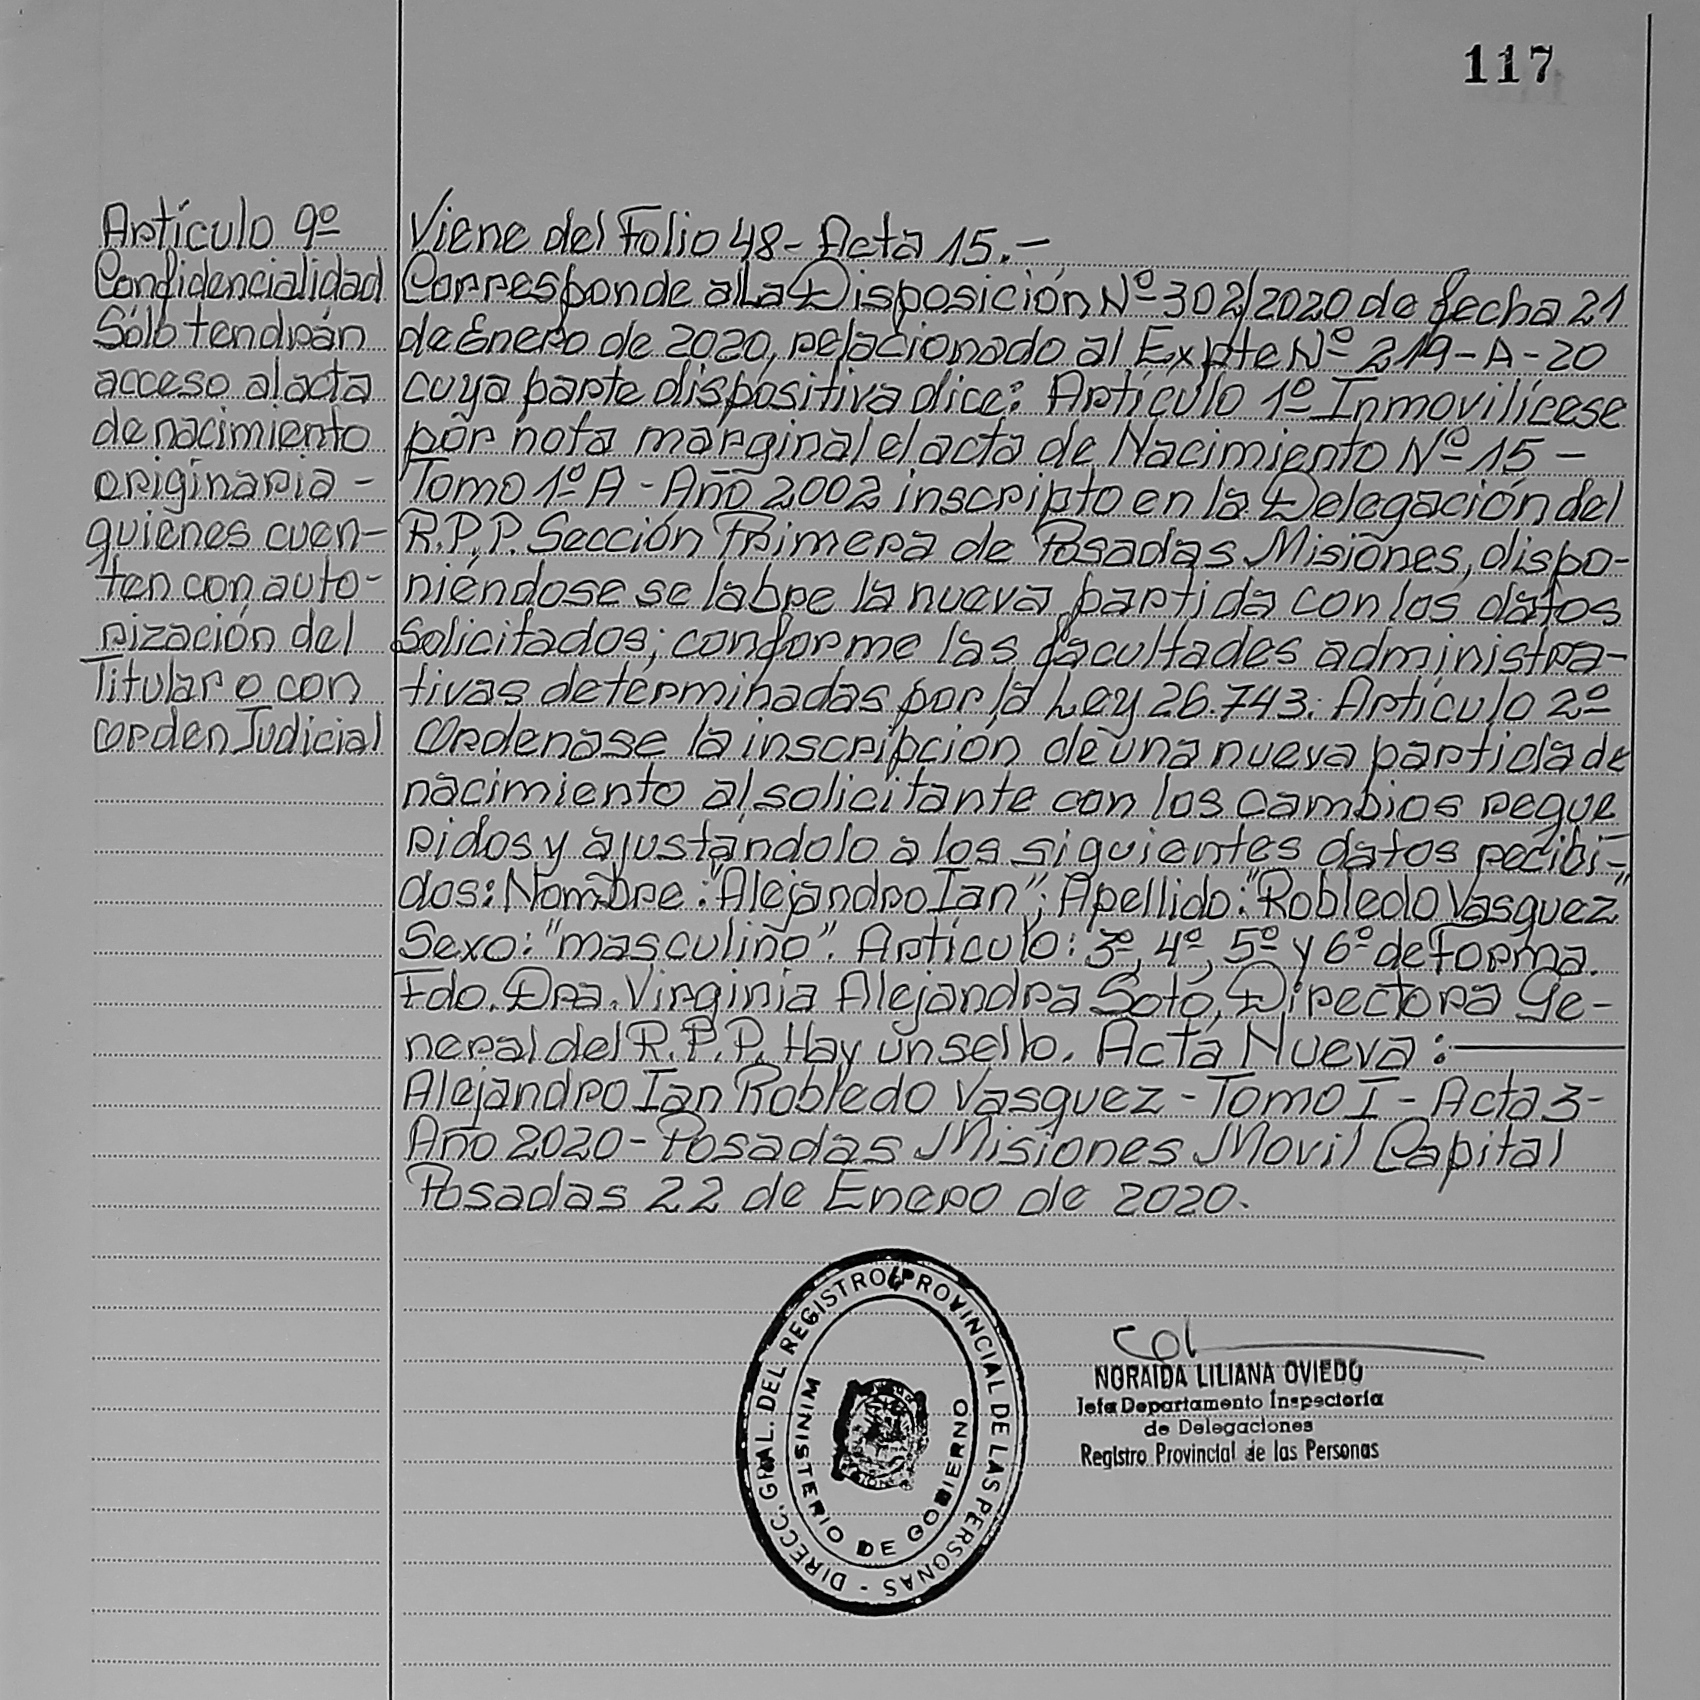 117
Artículo 9º
Confidencialidad
Sólo tendrán
acceso al acta
de nacimiento
originaria -
quienes cuen-
ten con auto-
rización del
Titular o con
orden Judicial
Viene del Folio 48 - Acta 15.-
Corresponde a la Disposición Nº 302/2020 de fecha 21
de Enero de 2020, relacionado al Expte Nº 219-A-20
cuya parte dispositiva dice: Artículo 1º Inmovilícese
por nota marginal el acta de Nacimiento Nº 15 -
Tomo 1º A - Año 2002 inscripto en la Delegación del
R.P.P. Sección Primera de Posadas Misiones, dispo-
niéndose se labre la nueva partida con los datos
solicitados; conforme las facultades administra-
tivas determinadas por la Ley 26.743. Artículo 2º
Ordenase la inscripción de una nueva partida de
nacimiento al solicitante con los cambios reque
ridos y ajustándolo a los siguientes datos recibi-
dos: Nombre: "Alejandro Ian"; Apellido: "Robledo Vasquez"
Sexo: "masculino". Artículo: 3º, 4º, 5º y 6º de forma.
Fdo. Dra. Virginia Alejandra Soto, Directora Ge-
neral del R.P.P. Hay un sello. Acta Nueva:
Alejandro Ian Robledo Vasquez - Tomo I - Acta 3-
Año 2020 - Posadas Misiones Movil Capital
Posadas 22 de Enero de 2020.
DIRECC. GRAL. DEL REGISTRO PROVINCIAL DE LAS PERSONAS -
MINISTERIO DE GOBIERNO
NORAIDA LILIANA OVIEDO
Jefa Departamento Inspectoría
de Delegaciones
Registro Provincial de las Personas